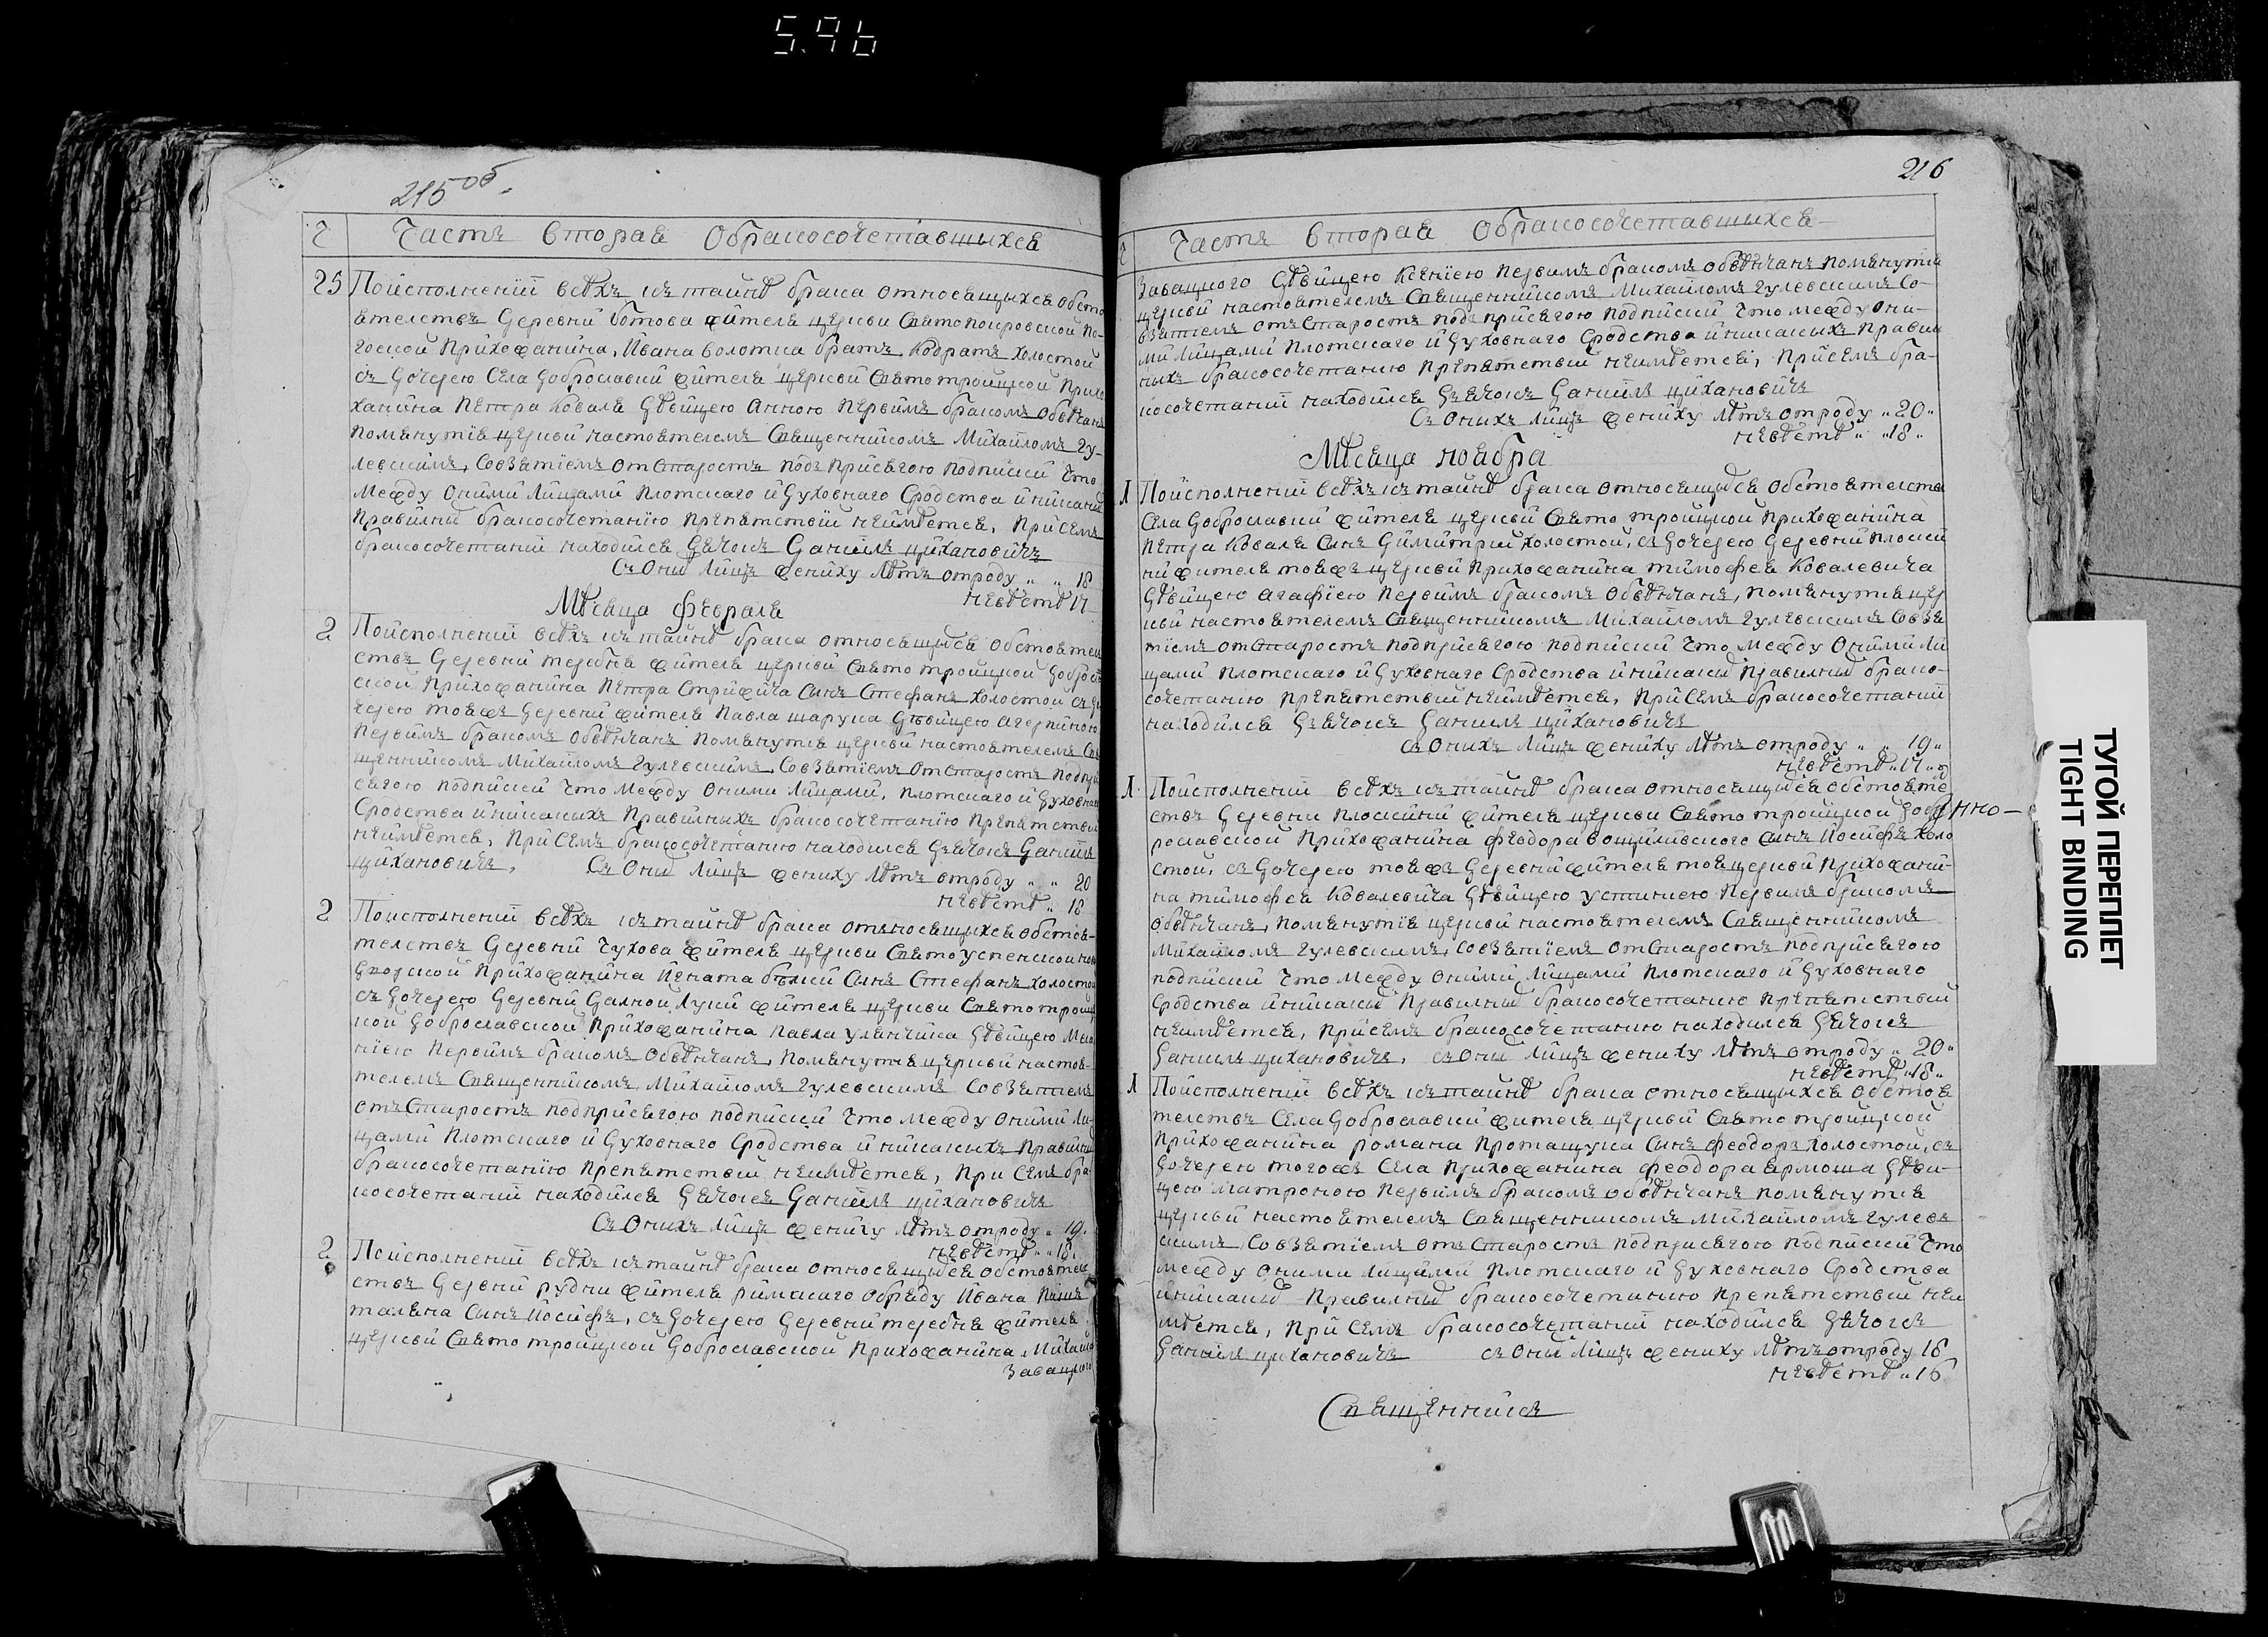 5.96
215 об.
Ч Часть вторая О бракосочетавшыхся
25 Поисполнениїй всѣхъ къ тайнѣ брака относящыхся обсто
ятелствъ Деревнѣ Ботова жителя церкви Святопокровской По-
гоской Прихожанина, Ивана Болотка братъ Кодратъ холостой
съ дочерею Села Доброславки жителя церкви Святотроицкой Прихо
жанина Петра Коваля дѣвицею Анною первымъ бракомъ обвѣнчанъ
помянутїя церкви настоятелемъ Священникомъ Михайломъ Гу-
левскимъ, совзятїемъ от старостъ подъ присягою подписки что
между оними лицами плотскаго и духовнаго сродства и никаких
правилнихъ бракосочетанїю препятствїй неимѣется, при семъ
бракосочетании находился дячокъ Данїилъ Цихановичъ
съ онихъ лицъ жениху лѣтъ отроду " " 18
невѣстѣ 17
Мѣсяца февраля
2 Поисполнении всѣхъ къ тайнѣ брака относящыхся обстоятел
ствъ Деревни Теребня жителя церкви Святотроицкой Доброслав
ской Прихожанина Петра Стрижича сынъ Стефанъ холостой съ до
черею тояжъ деревни жителя Павла Шарупа дѣвицею Агрепиною
первимъ бракомъ обвѣнчанъ помянутїя церкви настоятелемъ Свя
щенникомъ Михайломъ Гулевскимъ, совзятїемъ от старостъ подпри
сягою подписки что между оними лицами, плотскаго и духовнаго
сродства и никакихъ правилныхъ бракосочетанїю препятствий
неимѣется, при семъ бракосочетанию находился дячокъ Данїилъ
Цихановичъ, съ онихъ лицъ жениху лѣтъ отроду " " 20
невѣстѣ " 18
2 Поисполнении всѣхъ къ тайнѣ брака относящыхся обстоя-
телствъ Деревни Чухова жителя церкви Святоуспенской
Прихожанина Игната Бѣлкий сынъ Стефанъ холостой
съ дочерею деревни Далной Луки жителя церкви Святотроиц
кой Доброславской Прихожанина Павла Уланчика дѣвицею
нїею первымъ бракомъ обвѣнчанъ, помянутїя церкви настоя-
телемъ Священникомъ Михайломъ Гулевскимъ совзятїемъ
отъ старостъ подприсягою подписки что между оними ли-
цами плотскаго и духовнаго сродства и никакихъ правилних
бракосочетанїю препятствий неимѣется, при семъ бра
косочетании находился дячокъ Данїилъ Цихановичъ
съ онихъ лицъ жениху лѣтъ отроду " 19.
невѣстѣ " " 18.
2 Поисполнении всѣхъ къ тайнѣ брака относящихся обстоятел
ствъ Деревни Рудни жителя римскаго обряду Ивана
талёна сынъ Иосифъ, съ дочерею деревни Теребня жителя
церкви Святотроицкой Доброславской Прихожанина Михаила
Завацкого
216
Ч Часть вторая О бракосочетавшыхся
Завацкого дѣвицею Ксенїею первымъ бракомъ обвѣнчанъ помянутїя
церкви настоятелемъ Священникомъ Михайломъ Гулевскимъ со-
взятїемъ отъ старостъ подъ присягою подписки что между они-
ми лицами плотскаго и духовнаго сродства и никакихъ правил
ныхъ бракосочетанию препятствий неимѣется, при семъ бра-
косочетании находился дзячокъ Данїилъ Цихановичъ
съ онихъ лицъ жениху лѣтъ отроду " 20 "
невѣстѣ " " 18 "
Мѣсяца ноября
Л Поисполнении всѣхъ къ тайнѣ брака относящихся обстоятелствъ
Села Доброславки жителя церкви Святотроицкой Прихожанина
Петра Коваля сынъ Димитрий холостой, съ дочерею деревни Плоски
ни жителя тояжъ церкви Прихожанина Тимофея Ковалевича
дѣвицею Агафїею первимъ бракомъ обвѣнчанъ, помянутїя цер
кви настоятелемъ Священникомъ Михайломъ Гулевскимъ совзя
тїемъ от старостъ подприсягою подписки что между оними ли
цами плотскаго и духовнаго сродства и никакихъ правилних брако-
сочетанию препятствий неимѣется, при семъ бракосочетании
находился дзячокъ Данїилъ Цихановичъ
съ онихъ лицъ жениху лѣтъ отроду " " 19 "
невѣстѣ " 17 "
Л. Поисполнений всѣхъ къ тайнѣ брака относящихся обстояте
ствъ Деревни Плоскини жителя церкви Святотроицкой Доб
рославской Прихожанина Феодора Вощилѣвского сынъ Иосифъ холо
стой, съ дочерею тояжъ деревни жителя тоя церкви Прихожани-
на Тимофея Ковалевича дѣвицею Устинїею первимъ бракомъ
обвѣнчанъ, помянутїя церкви настоятелемъ Священникомъ
Михайломъ Гулевскимъ, совзятїемъ от старостъ подприсягою
подписки что между оними лицами плотскаго и духовнаго
сродства и никаких правилних бракосочетанию препятствий
неимѣется, при семъ бракосочетанию находился дячокъ
Данїилъ Цихановичъ, съ оних лицъ жениху лѣтъ отроду " 20 "
невѣстѣ " 18 "
Л Поисполнении всѣхъ къ тайнѣ брака относящыхся обстоя
телствъ Села Доброславки жителя церкви Святотроицкой
Прихожанина Романа Проташука сынъ Феодоръ холостой, съ
дочерею тогожъ села Прихожанина Феодора Ярмоша дѣви-
цею Матроною первимъ бракомъ обвѣнчанъ помянутїя
церкви настоятелемъ Священникомъ Михайломъ Гулев
скимъ, совзятїемъ отъ старостъ подприсягою подписки что
между оними лицами плотскаго и духовнаго сродства
и никаких правилних бракосочетанию препятствий неи
мѣется, при семъ бракосочетании находился дячокъ
Данїилъ Цихановичъ съ оних лицъ жениху лѣтъ отроду 18
невѣстѣ " 16
Священникъ
ТУГОЙ ПЕРЕПЛЕТ
TIGHT BINDING